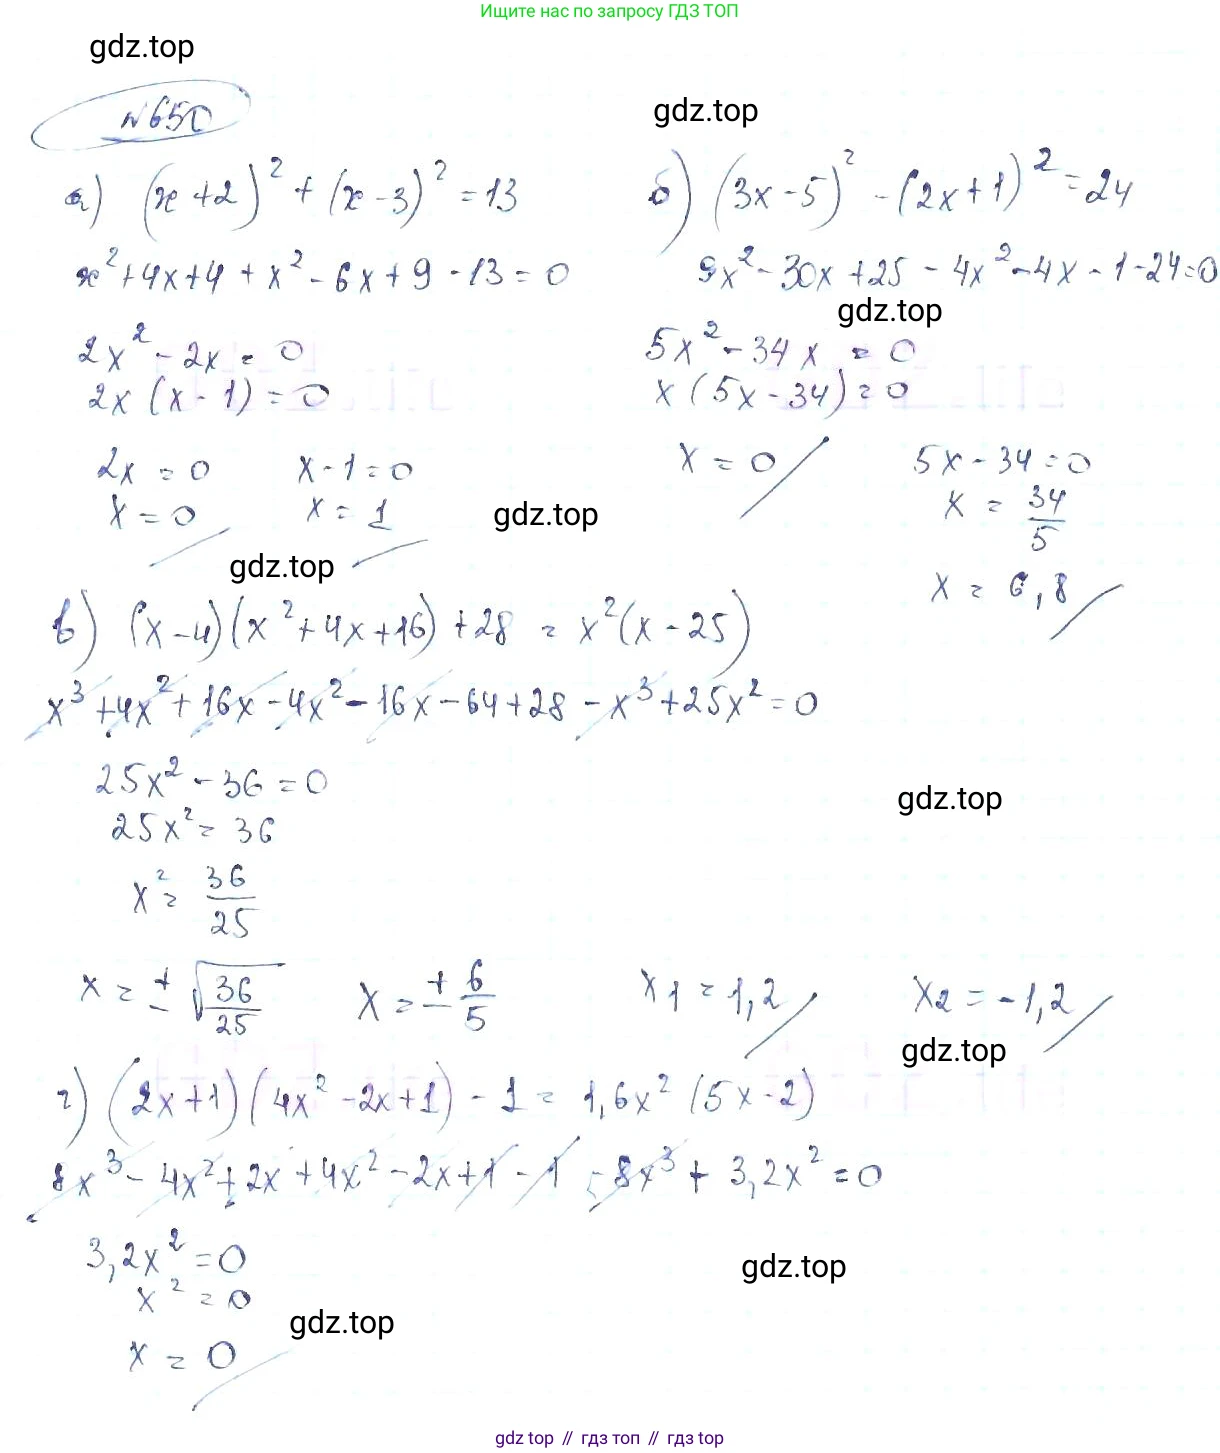 Ищите нас по запросу ГДЗ ТОП
gdz.top
№650
gdz.top
а) (x+2)² + (x-3)² = 13
x² + 4x + 4 + x² - 6x + 9 - 13 = 0
2x² - 2x = 0
2x (x - 1) = 0
2x = 0 x - 1 = 0
x = 0 x = 1
gdz.top
gdz.top
б) (3x - 5)² - (2x + 1)² = 24
9x² - 30x + 25 - 4x² - 4x - 1 - 24 = 0
gdz.top
5x² - 34x = 0
x (5x - 34) = 0
x = 0 5x - 34 = 0
x = 34/5
x = 6,8
в) (x - 4)(x² + 4x + 16) + 28 = x²(x - 25)
x³ + 4x² + 16x - 4x² - 16x - 64 + 28 - x³ + 25x² = 0
25x² - 36 = 0
25x² = 36
gdz.top
x² = 36/25
x = ± √36/25 x = ± 6/5 x1 = 1,2 x2 = -1,2
gdz.top
г) (2x + 1)(4x² - 2x + 1) - 1 = 1,6x² (5x - 2)
8x³ - 4x² + 2x + 4x² - 2x + 1 - 1 - 8x³ + 3,2x² = 0
3,2x² = 0
gdz.top
x² = 0
gdz.top
x = 0
gdz top // гдз топ // гдз top